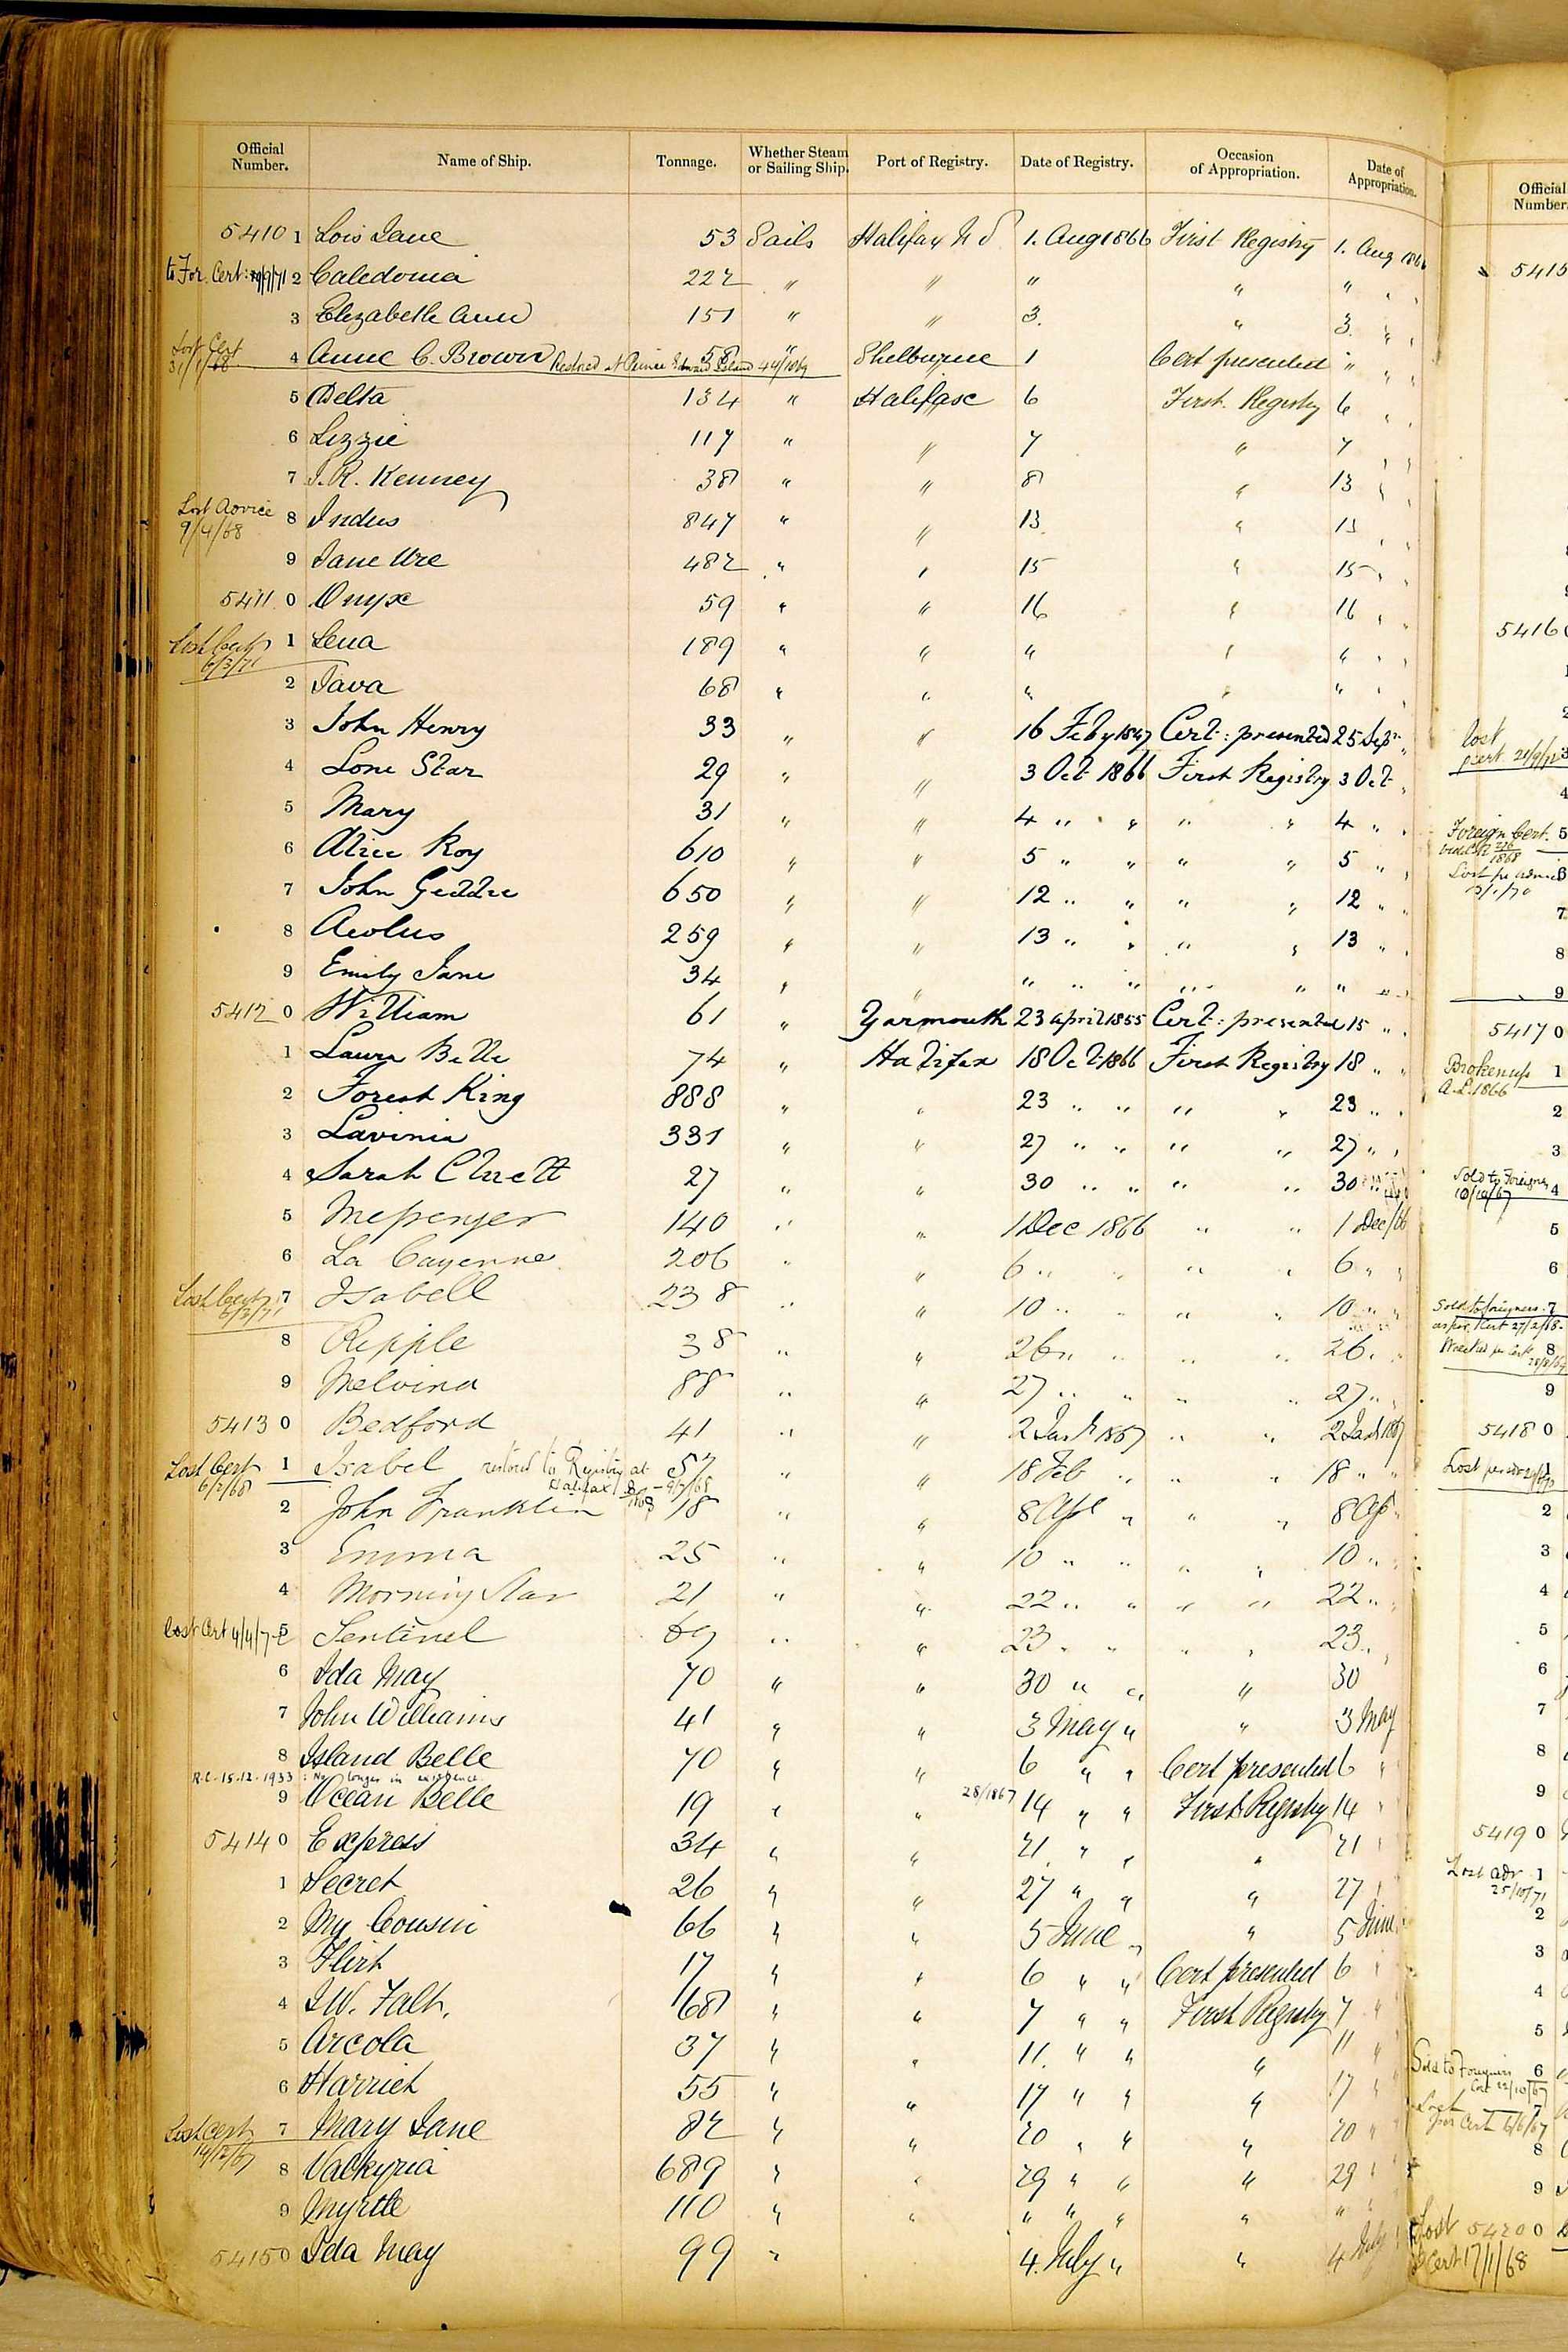 Official Number. Name of Ship. Tonnage. Whether Steam or Sailing Ship. Port of Registry. Date of Registry. Occasion of Appropriation. Date of Appropriation.
5410 1 Lois Jane 53 Sails Halifax N S 1. Aug 1866 First Registry 1. Aug 1866
to For. Cert: 19/9/71 2 Caledonia 222 " " " " "
3 Elizabeth Ann 151 " " 3. " 3. "
Lost Cert 31/1/68 4 Anne C. Brown Restored at Prince Edward Island 44/1869 58 " Shelburne 1 Cert presented "
5 Delta 134 " Halifax 6 First Registry 6
6 Lizzie 117 " " 7 " 7
7 J. R. Kenney 38 " " 8 " 13
Lost Advice 9/4/68 8 Indus 847 " " 13 " 13
9 Jane Ure 482 " " 15 " 15
5411 0 Onyx 59 " " 16 " 16
Lost Cert 6/3/71 1 Lena 189 " " " " "
2 Java 68 " " " " "
3 John Henry 33 " " 16 Feby 1847 Cert: presented 25 Sepr "
4 Lone Star 29 " " 3 Oct 1866 First Registry 3 Oct "
5 Mary 31 " " 4 " " " " 4 "
6 Alice Roy 610 " " 5 " " " " 5 "
7 John Geddie 650 " " 12 " " " " 12 "
8 Aeolus 259 " " 13 " " " " 13 "
9 Emily Jane 34 " " " " " " " " "
5412 0 William 61 " Yarmouth 23 April 1855 Cert: presented 15 "
1 Laura Belle 74 " Halifax 18 Oct 1866 First Registry 18 "
2 Forest King 888 " " 23 " " " " 23 "
3 Lavinia 331 " " 27 " " " " 27 "
4 Sarah Cluett 27 " " 30 " " " " 30 "
5 Messenger 140 " " 1 Dec 1866 " " 1 Dec/66
6 La Cayenne 206 " " 6 " " " " 6 "
Lost Cert 6/3/71 7 Isabell 238 " " 10 " " " " 10 "
8 Ripple 38 " " 26 " " " " 26 "
9 Melvina 88 " " 27 " " " " 27 "
5413 0 Bedford 41 " " 2 Jany 1867 " " 2 Jan 1867
Lost Cert 6/2/68 1 Isabel restored to Registry at Halifax 8/1868 - 9/7/68 57 " " 18 Feb " " " 18 "
2 John Franklin 18 " " 8 Apl " " " 8 Ap "
3 Emma 25 " " 10 " " " " 10 "
4 Morning Star 21 " " 22 " " " " 22 "
Lost Cert 4/4/72 5 Sentinel 69 " " 23 " " " " 23 "
6 Ida May 70 " " 30 " " " 30
7 John Williams 41 " " 3 May " " 3 May
8 Island Belle 70 " " 6 " " Cert presented 6 "
R.C. 15.12.1933 : No longer in existence
9 Ocean Belle 19 " " 28/1867 14 " " First Registry 14 "
5414 0 Express 34 " " 21 " " " 21 "
1 Secret 26 " " 27 " " " 27 "
2 My Cousin 66 " " 5 June " " 5 June
3 Flirt 17 " " 6 " " Cert presented 6 "
4 J.W. Falt. 68 " " 7 " " First Registry 7 "
5 Arcola 37 " " 11. " " " 11 "
6 Harriet 55 " " 17 " " " 17 "
Lost Cert 14/12/67 7 Mary Jane 82 " " 20 " " " 20 "
8 Valkyria 689 " " 29 " " " 29 "
9 Myrtle 110 " " " " " " " "
5415 0 Ida May 99 " 4. July " " 4 July
Official Number.
5415
5416 0
1
2
lost pcert 21/9/72 3
4
Foreign Cert. 5
1868
Lost pr advice 6
7
8
9
5417 0
Broken up A.L. 1866 1
2
3
Sold to Foreigners 10/10/67 4
5
6
Sold to foreigners 7
as per Cert 27/2/68.
Wrecked per Cert 8
9
5418 0
Lost per 1
2
3
4
5
6
7
8
9
5419 0
Lost adv 25/10/71 1
2
3
4
5
Sold to Foreigners Cert 22/10/67 6
Lost per Cert 6/6/67 7
8
9
Lost 5420 0
pCert 17/1/68